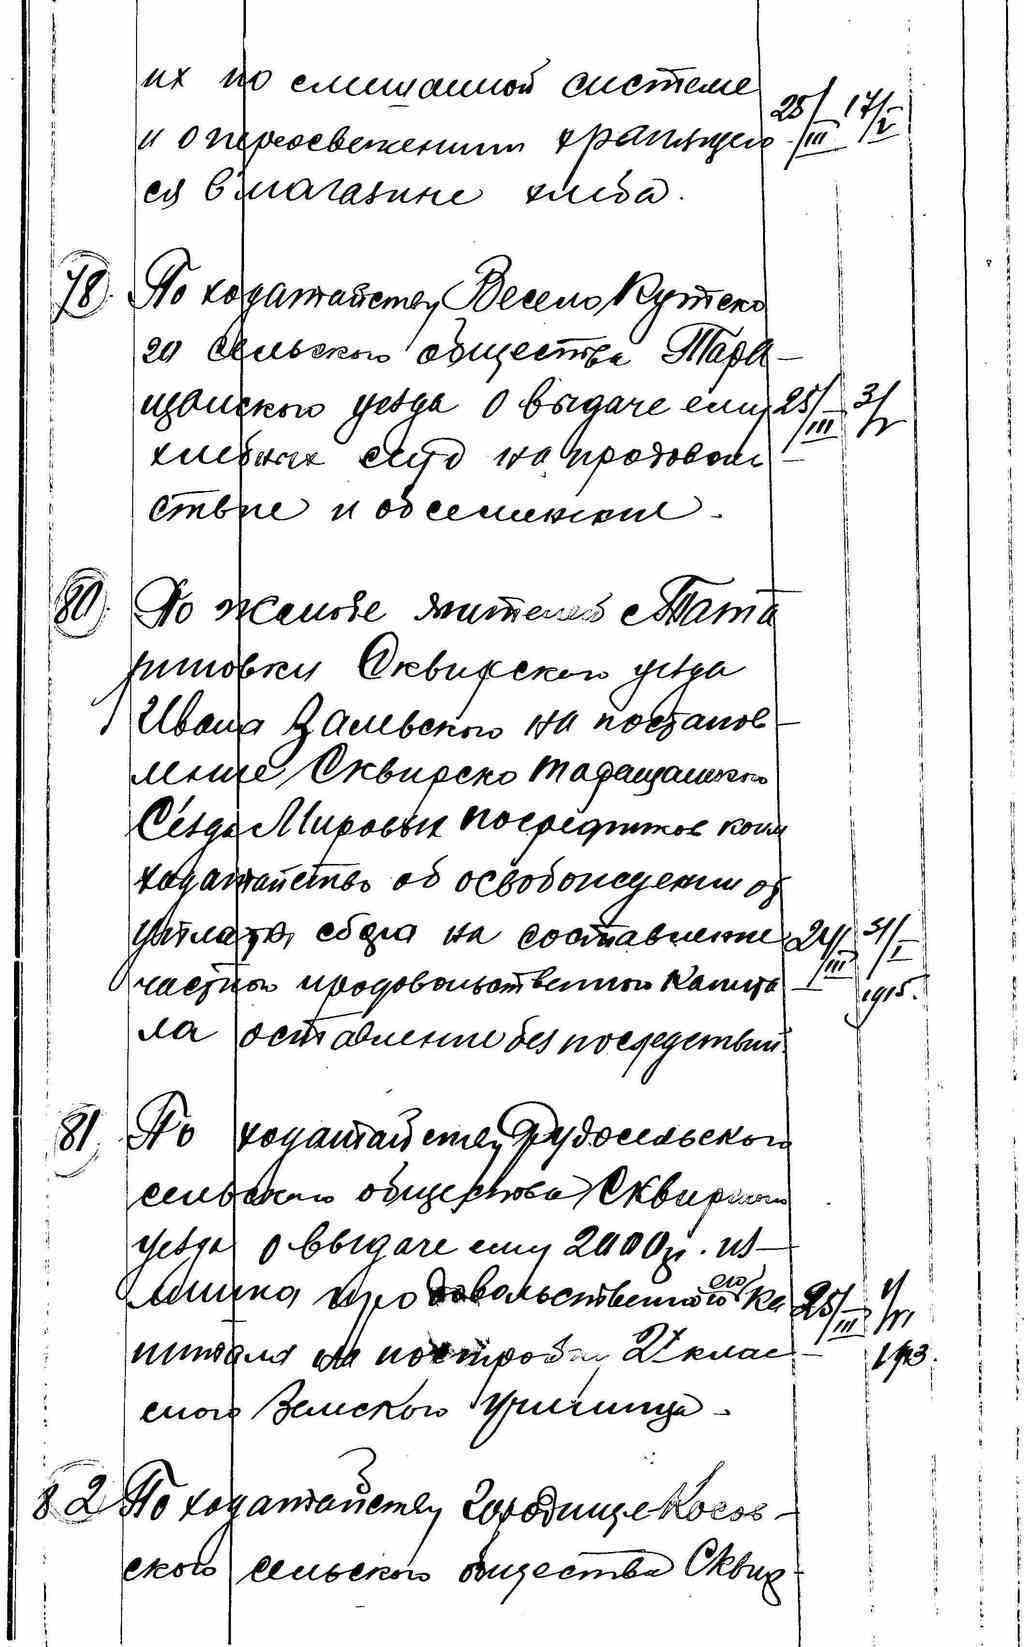 их по смешанной системе
и о переосвежении хранящего 25/III 17/V
ся в магазине хлеба.
78. По ходатайству Весело Кутско
го сельского общества Тара-
щанского уезда о выдаче ему 25/III 3/V
хлебных ссуд на продоволь
ствие и обсеменение.
80. По жалобе жителей с Тата
риновки Сквирского уезда
Ивана Залевского на постанов-
ление Сквирско Таращанского
Съезда Мировых посредников коим
ходатайство об освобождении от
уплаты сбора на составление 24/III 31/I
частного продовольственного капита 1915.
ла оставление без последствий.
81. По ходатайству Рудосельского
сельского общества Сквирского
уезда о выдаче ему 2000р. из-
лишка продовольственного ка 25/III
питала на постройку 2х клас- 1913.
сного Земского училища.
82 По ходатайству Городище Косов-
ского сельского общества Сквир-